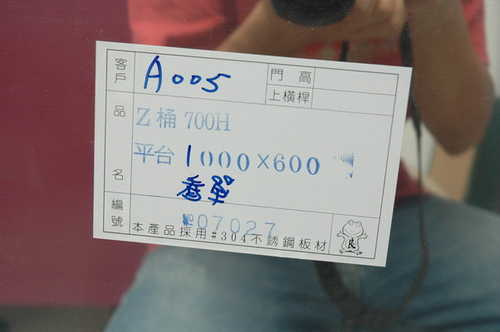 客戶 A005 門高
上橫桿
品名 Z桶 700H
平台 1000×600
喬單
編號 №07027
本產品採用#304不銹鋼板材
良